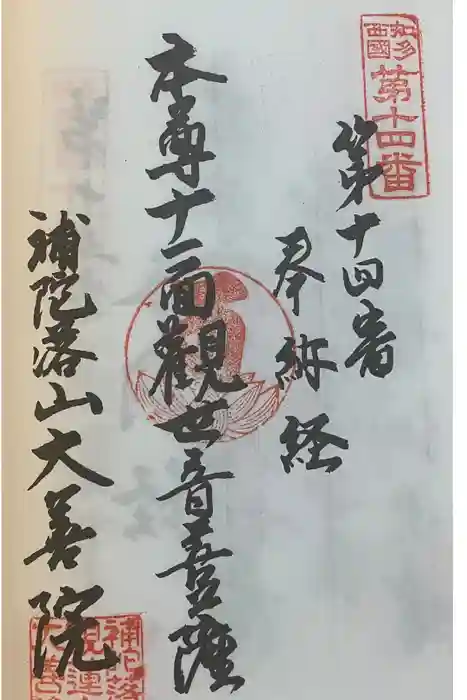 知多
西國
第十四番
第十四番
奉納経
本尊十一面觀世音菩薩
補陀落山大善院
補陀落